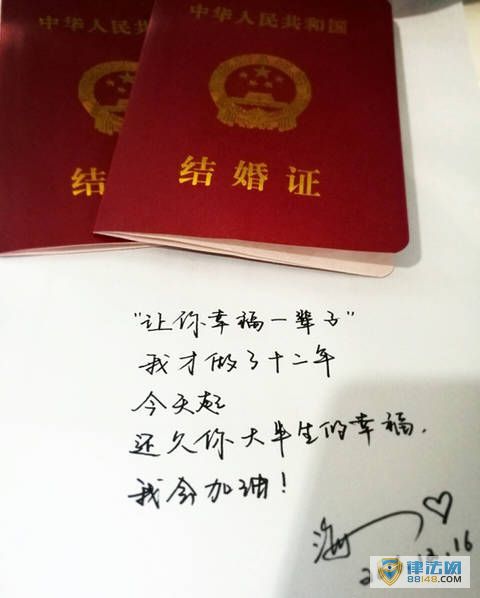 中华人民共和国
中华人民共和国
结
结婚证
"让你幸福一辈子"
我才做了十二年
今天起
还欠你大半生的幸福.
我会加油!
海
12.16
律法网
88148.com